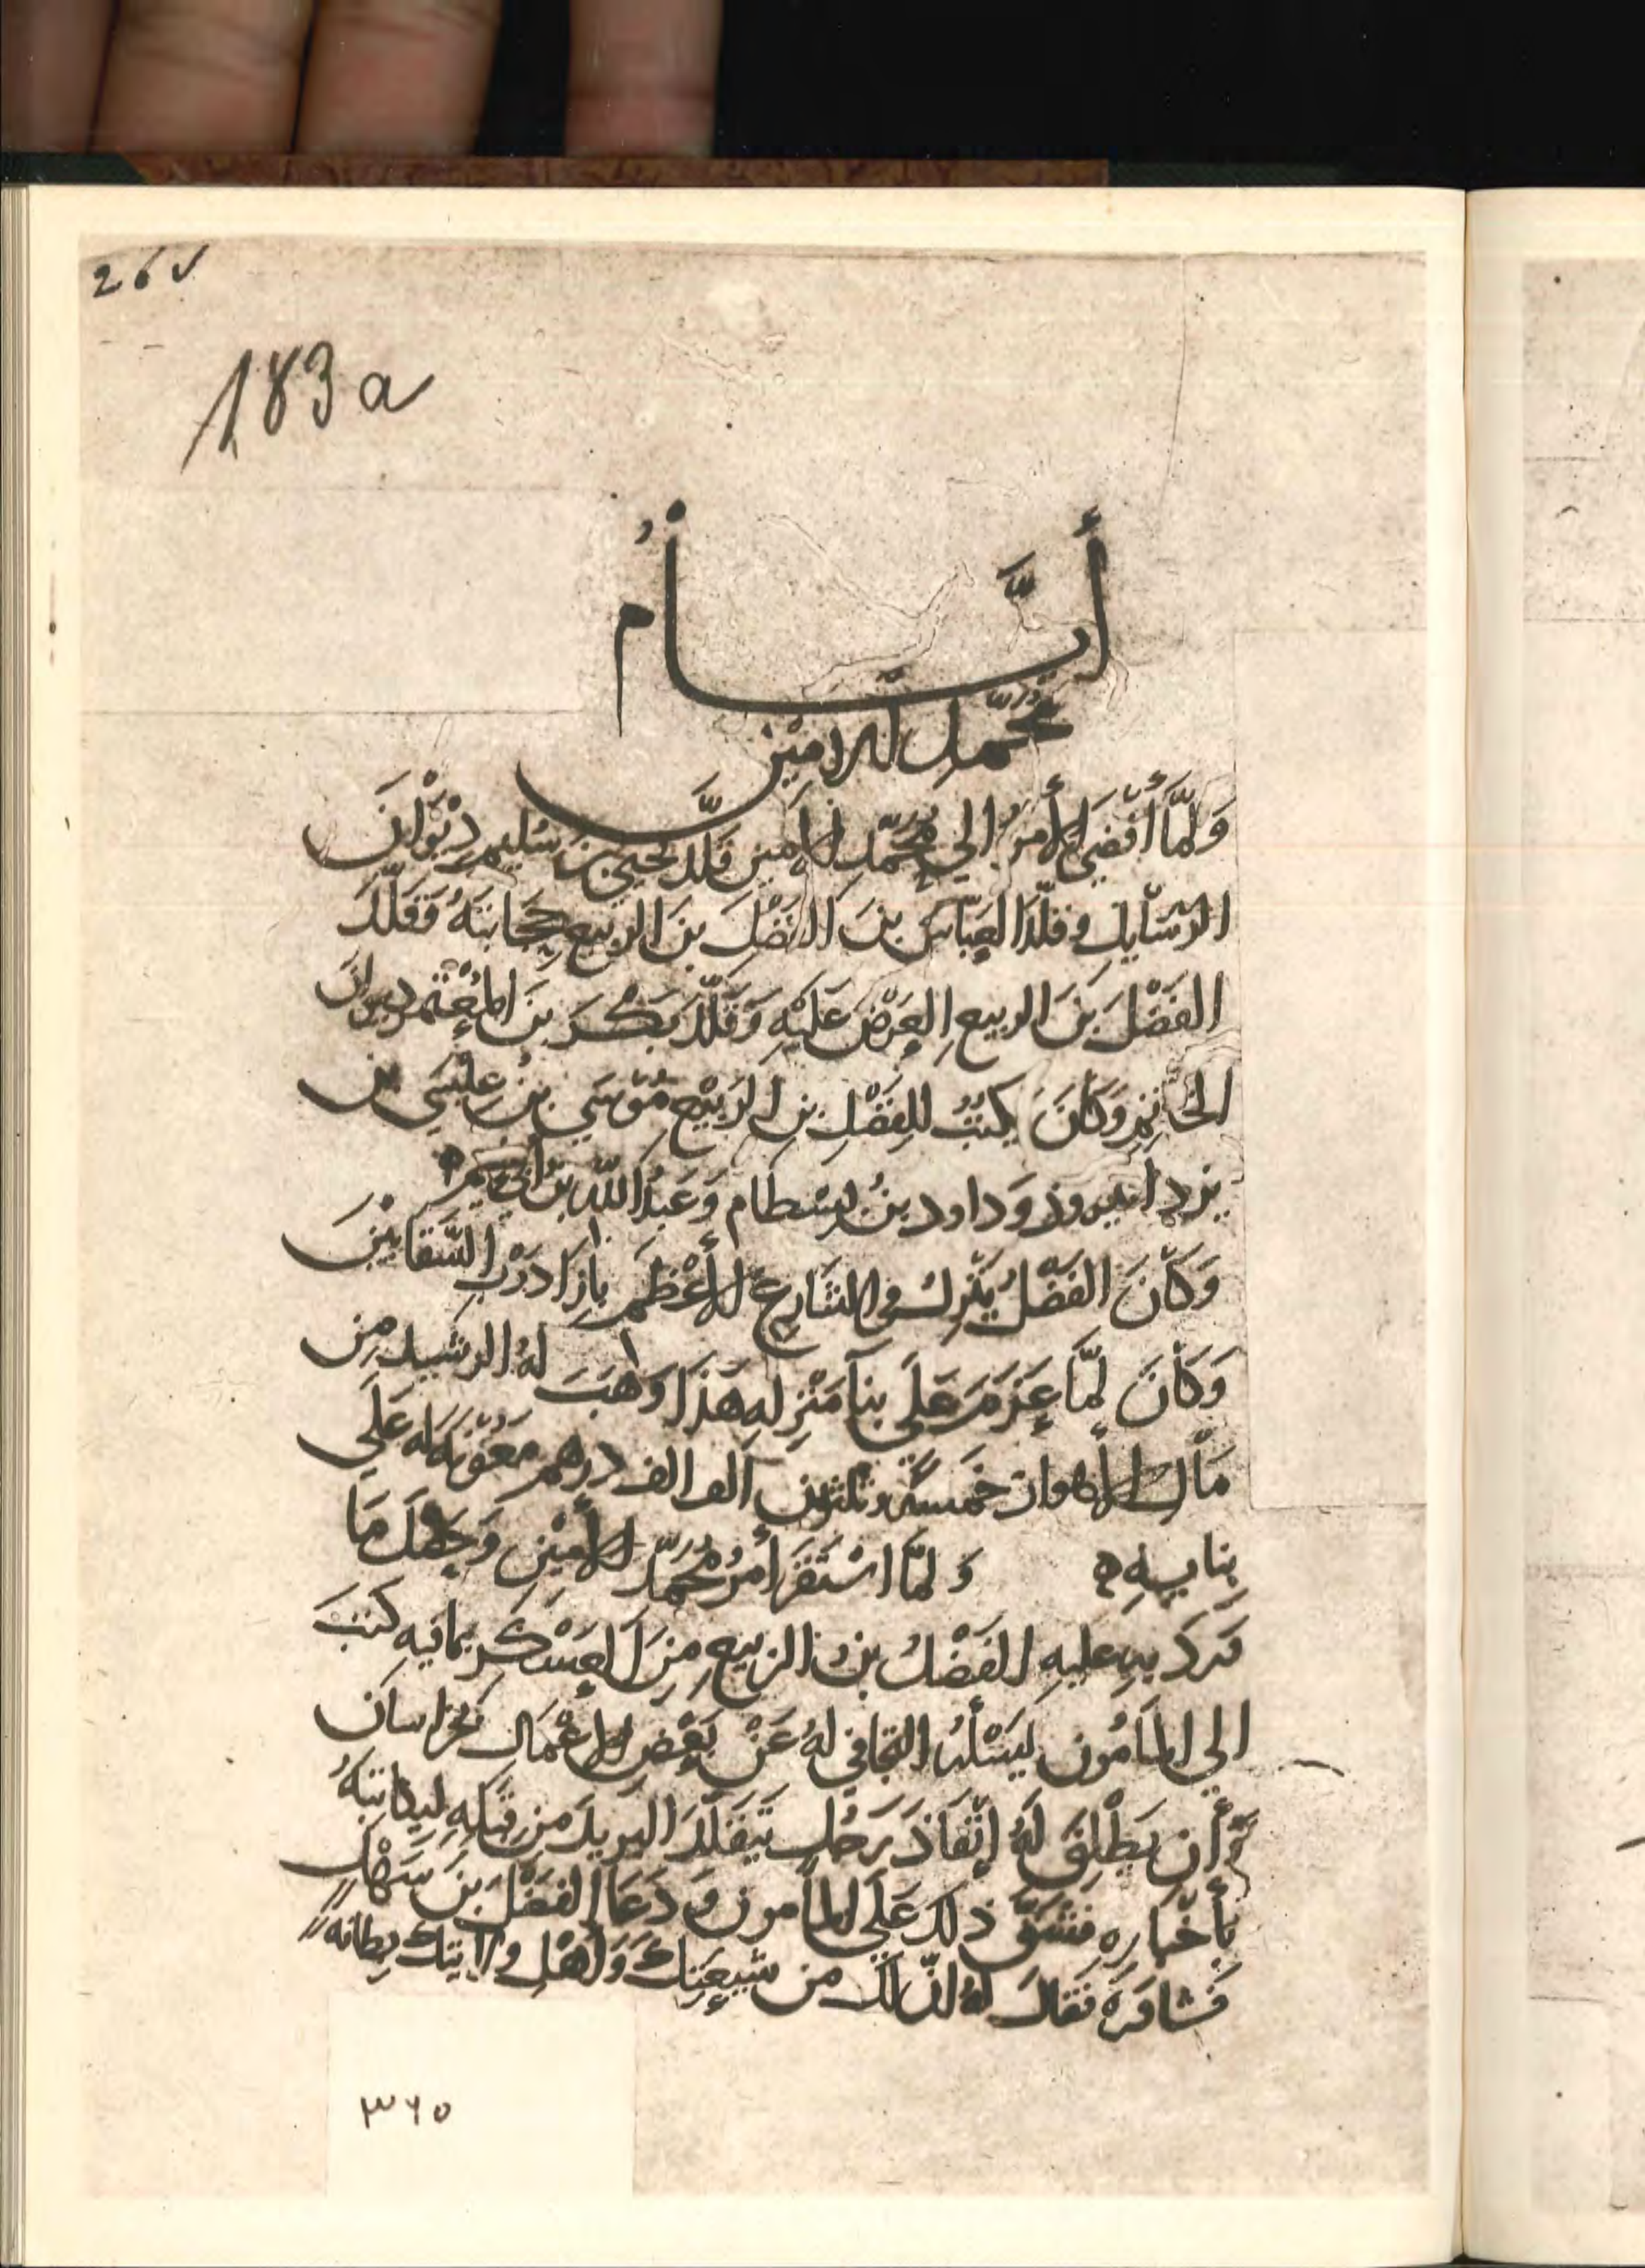 26v
183a
أيَّامُ
مُحمّد الامين
وَلمّا أفضى الأمرُ الي مُحمّد الامين قلّد يحيى بن سُليم دِيْوَانَ
الرسَايل وقلّد العَبّاسَ بنَ الفَضْلَ بنَ الربيع حِجَابتَهُ وَقلّدَ
الفَضْلَ بنَ الربيعِ العَرْضَ عَليْهِ وَقلّدَ بَكْرَ بنَ المُعْتَمِر ديوانَ
الخَاتِمِ وَكانَ يَكتُبُ للفَضْلِ بنِ الرَبيْعِ مُوْسَي بنُ عِيْسَي بن
يزدانيروذ وَداود بنُ بِسْطام وَعَبدُ اللّه بنُ أبي نعيم ه
وَكانَ الفَضْلُ يَنْزلُ في الشَارِعِ الأعْظمِ بإزَا دَرْبِ السَّقَايْينَ
وَكَانَ لمّا عَزمَ عَلَي بنآ مَنْزِلهِ هَذَا وَهَبَ لهُ الرشيد مِن
مَال الأهواز خمسَةً وثلثين الف الف درهم مَعُوْنةً لهُ عَلَي
بِنايِهِ ه وَلمّا اسْتَقرَ أمرُ مُحمّد الأمِيْن وَحَصَلَ مَا
وَرَدَ بِهِ عليهِ الفَضْلُ بنُ الربيع مِنَ العَسْكَرِ بمَا فيهِ كتبَ
الي المَأمُون يَسْئلهُ التجافي لهُ عَنْ بَعْضِ الأعْمَال بخرَاسَان
وَأن يُطْلِقَ لهُ إنْفَاذَ رَجُلٍ يَتقلّدَ البريدَ مِن قِبَلِهِ ليكاتبَهُ
بأخْبارِهِ فَشَقّ ذلك عَلَي المأمون وَدَعَا الفَضْلَ بنَ سَهْلٍ
فَشاوَرَهُ فقالَ لهُ انّ لكَ من شِيعَتِكَ وَأهْلِ وِلايَتِكَ بطانَة
٣٦٥